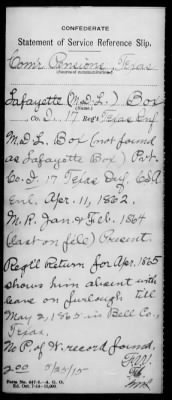 CONFEDERATE
Statement of Service Reference Slip.
Com'r Pensions, Texas
(Source of communication.)
Lafayette (M.D.L.) Box
(Name.)
Co. I. 17 Reg't Texas Inf
M.D.L. Box (not found
as Lafayette Box) Pvt.
Co. I. 17 Texas Inf CSA
Enl. Apr. 11, 1862.
M.R. Jan & Feb. 1864
(last on file) Present.
Reg'l Return for Apr. 1865
shows him absent with
leave on furlough til
May 2, 1865 in Bell Co.,
Texas.
No P. of W. record found.
5/25/15
Form No. 447-2.—A. G. O.
Ed. Oct. 7-14—15,000.